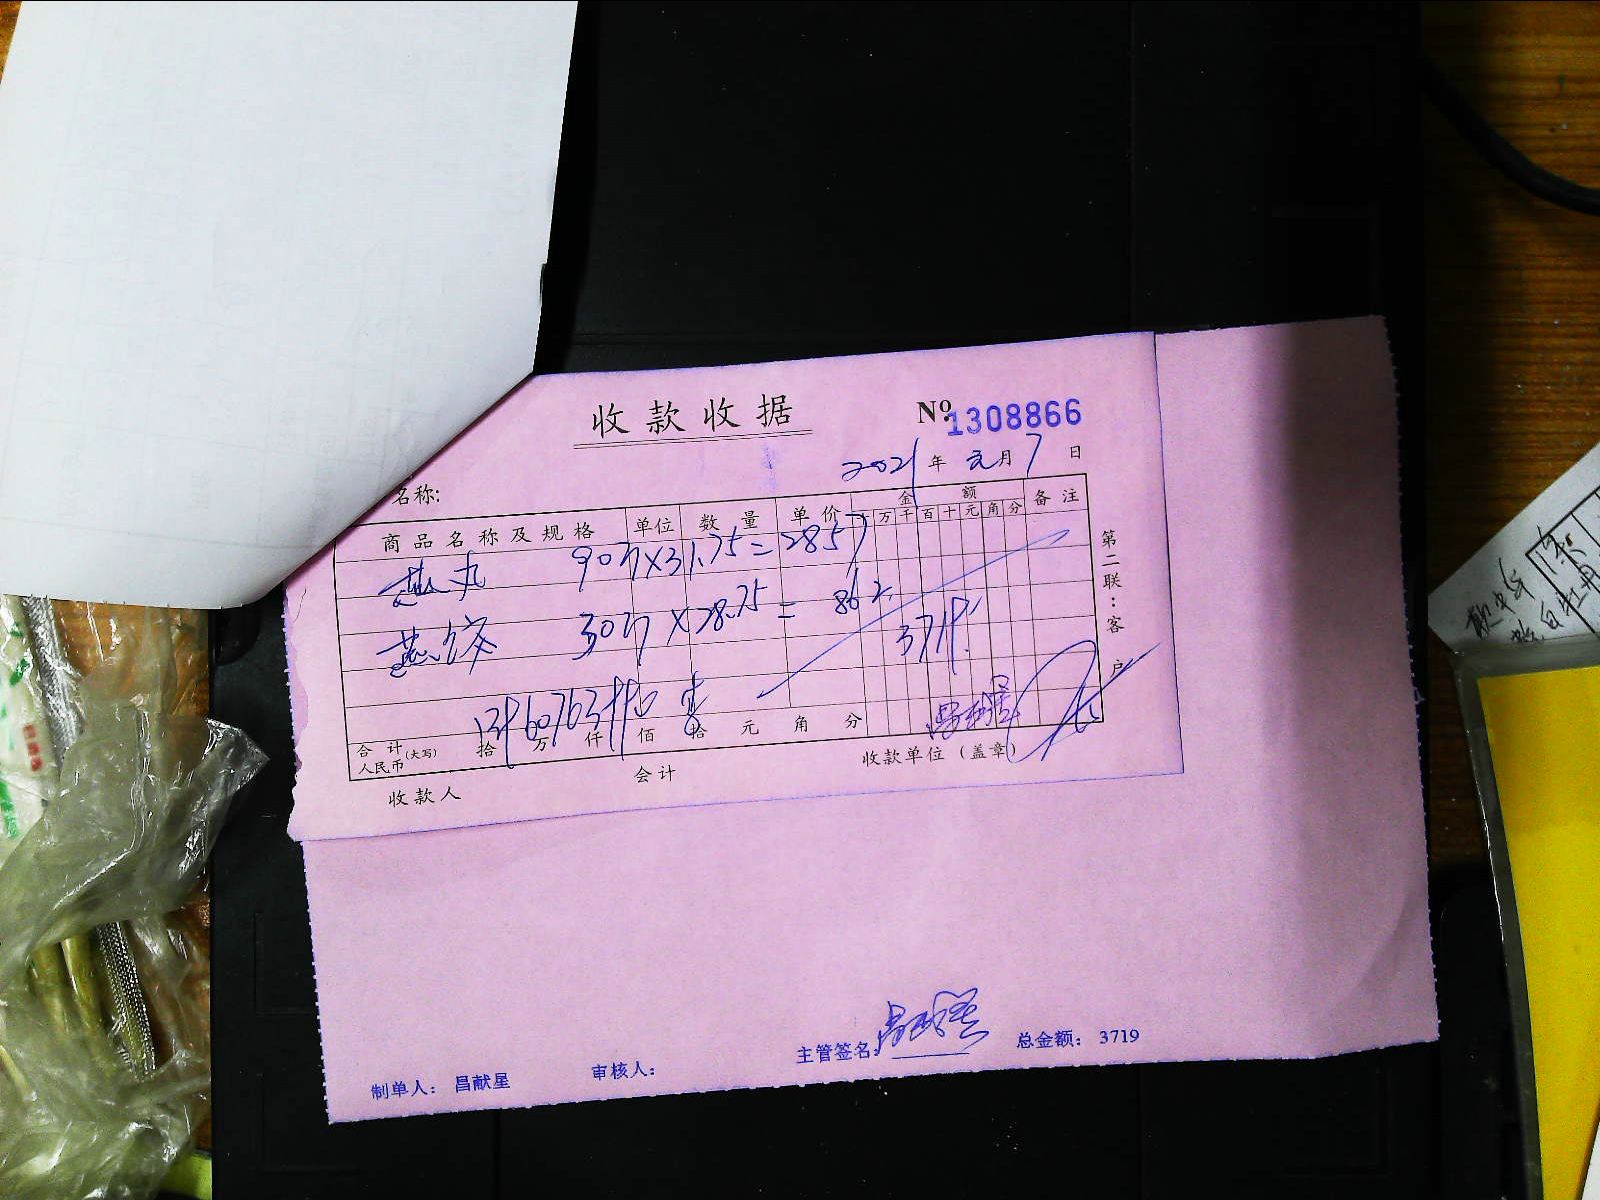 收款收据
No 1308866
2021年元月7日
名称:
商品名称及规格 单位 数量 单价 金额 备注
万千百十元角分
燕丸 90斤×31.75=2857
燕饺 30斤×28.75=862.
3719.
合计人民币(大写) 拾 万 仟 佰 拾 元 角 分
收款人 会计 收款单位(盖章)
第二联:客户
制单人: 昌献星 审核人: 主管签名: 总金额: 3719